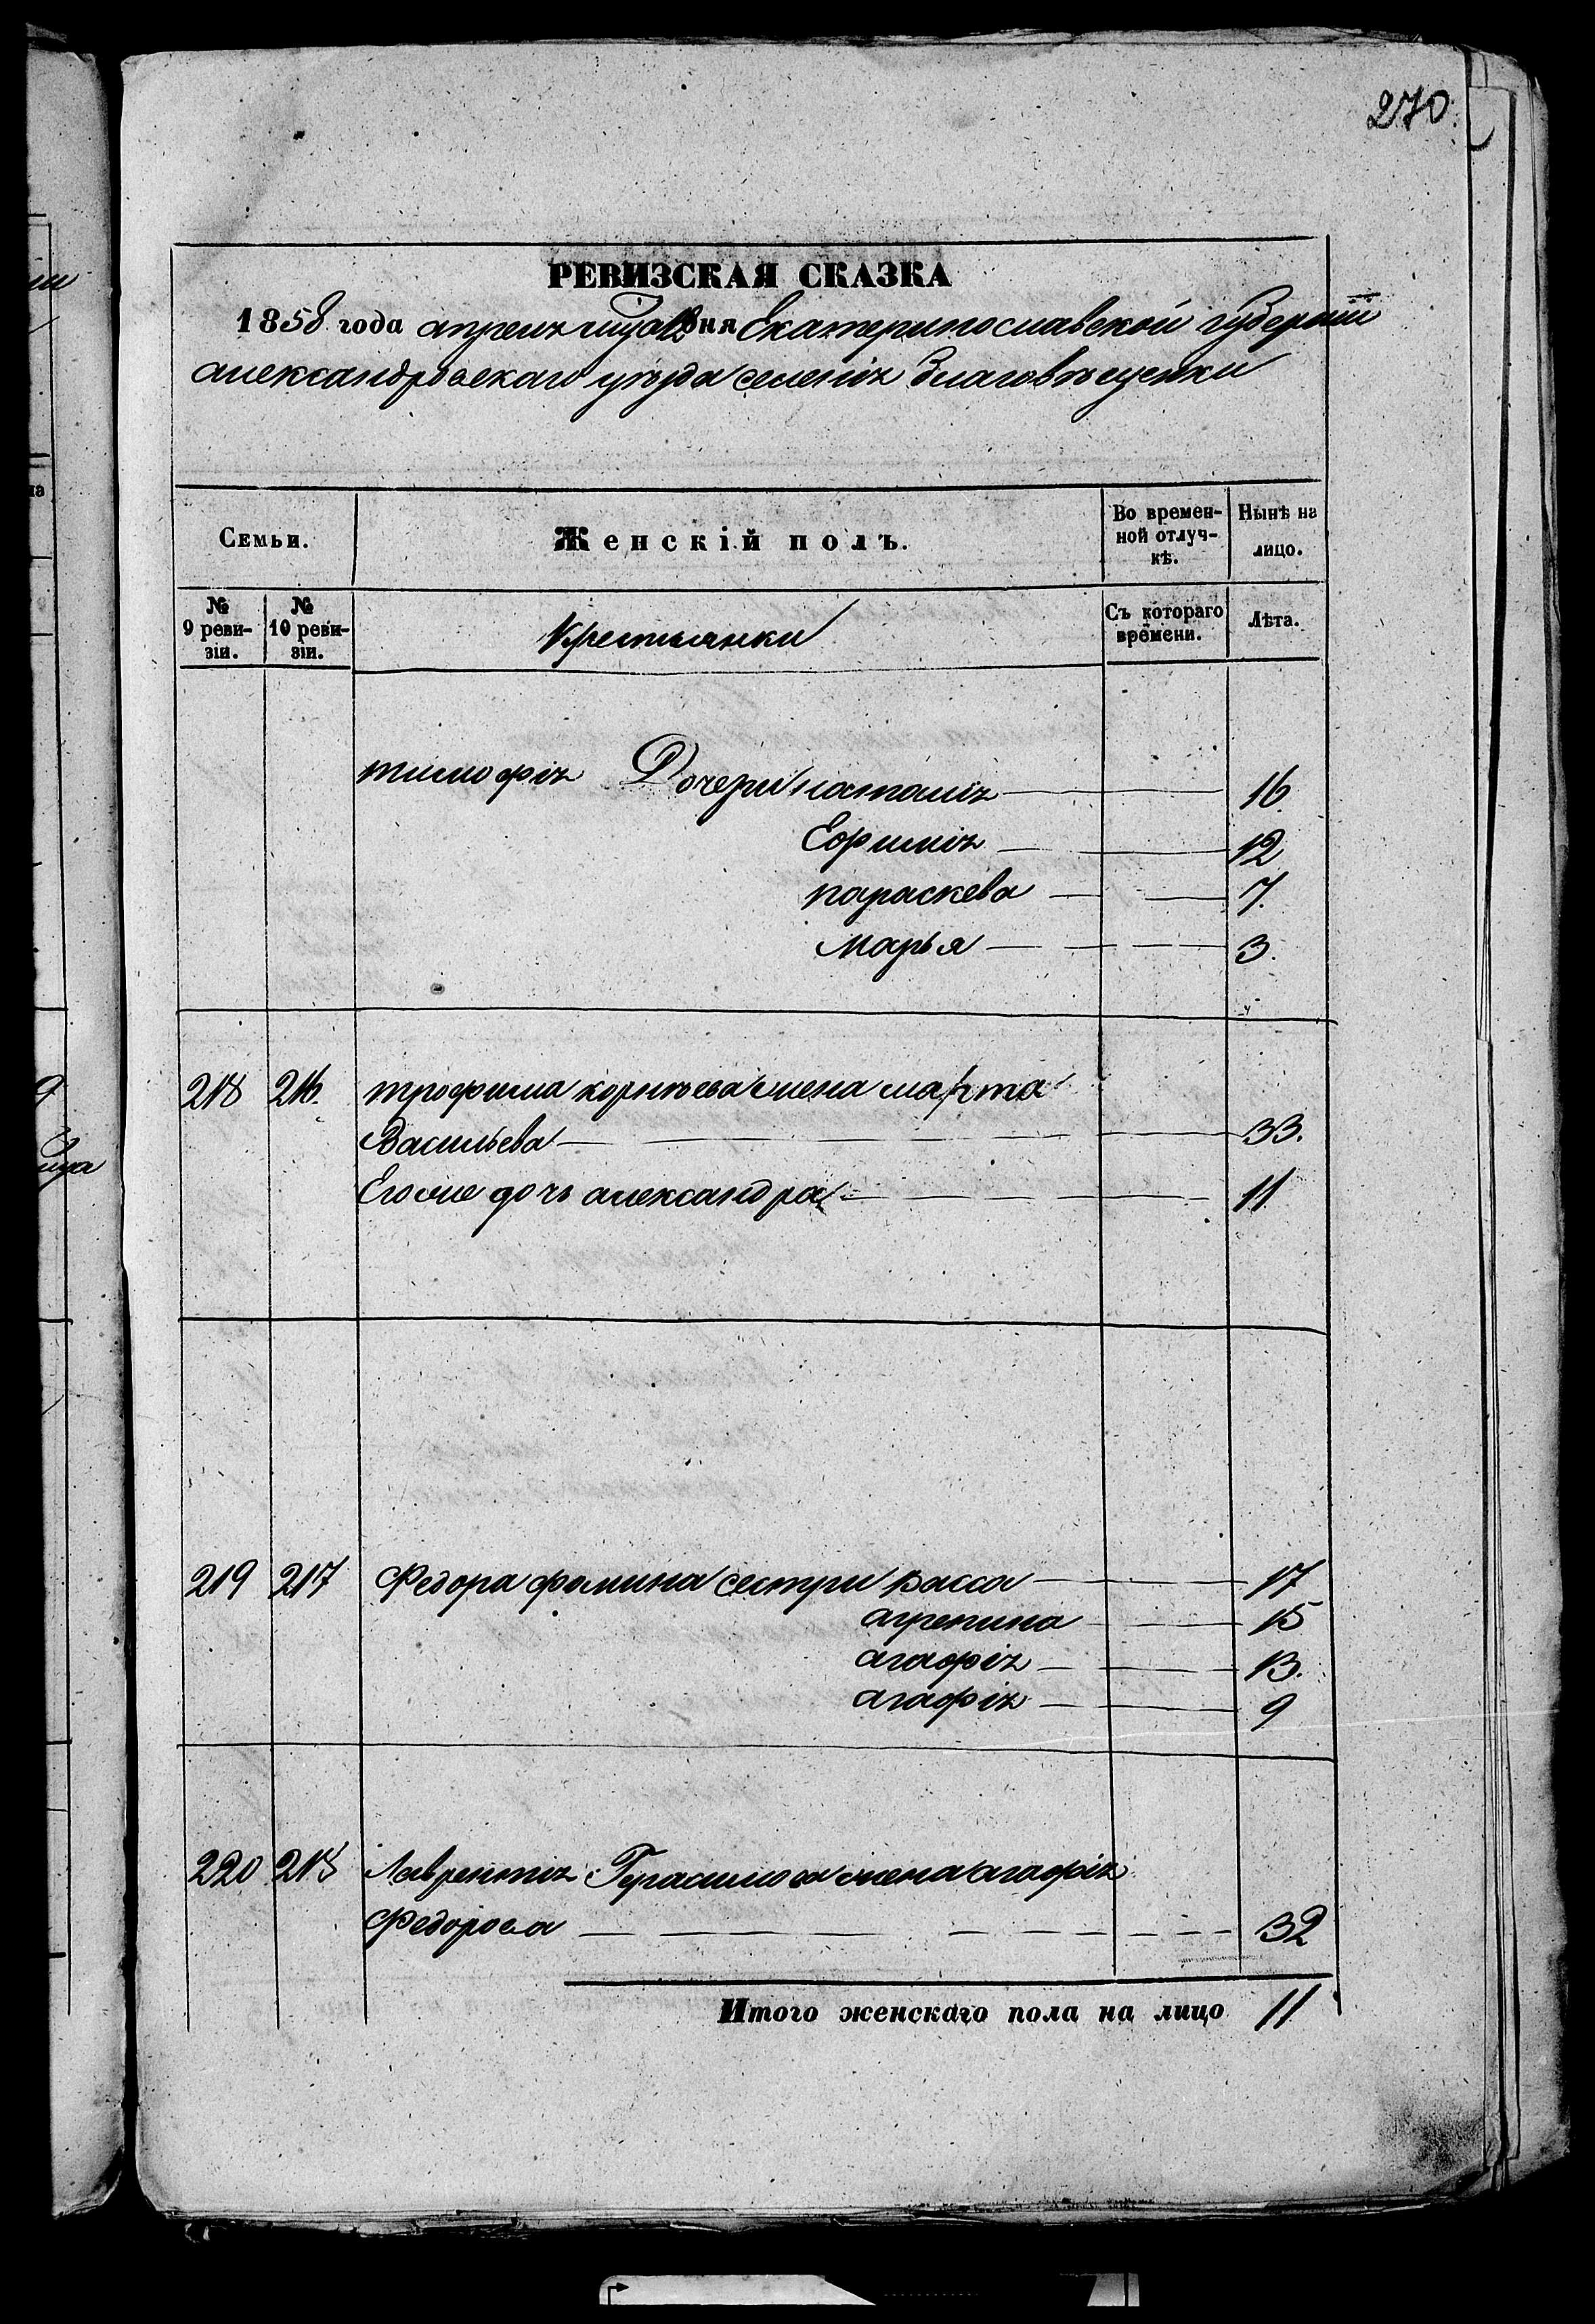 270.
РЕВИЗСКАЯ СКАЗКА
1858 года апреля дня Екатеринославской губерніи
александровскаго уѣзда селенія благовѣщенки
Семьи.
Женскій полъ.
Во времен-
ной отлуч-
кѣ.
Нынѣ на
лицо.
№
9 реви-
зіи.
№
10 реви-
зіи.
Крестьянки
Съ котораго
времени.
Лѣта.
тимофія Дочери наталія 16
Ефимія 12
параскева 7.
Марья 3.
218 216. трофима корнѣева жена марта
Васильева 33.
Егоже дочь александра 11
219 217 Федора фомина сестри васса 17
агрепина 15
агафія 13.
агафія 9
220 218 Лаврентія Герасимова жена агафія
Федорова 32
Итого женскаго пола на лицо 11